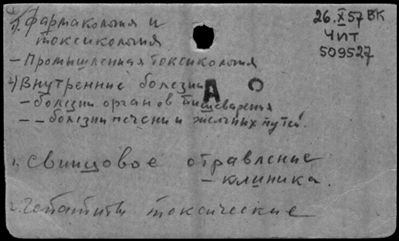 1) Фармакология и
токсикология
- Промышленная токсикология
2) Внутренние болезни
- болезни органов пищеварения
- - болезни печени и желчных путей.
26.X57 ВК
ЧИТ
509527
А О
1. Свинцовое отравление
- клиника.
2. Гепатиты токсические